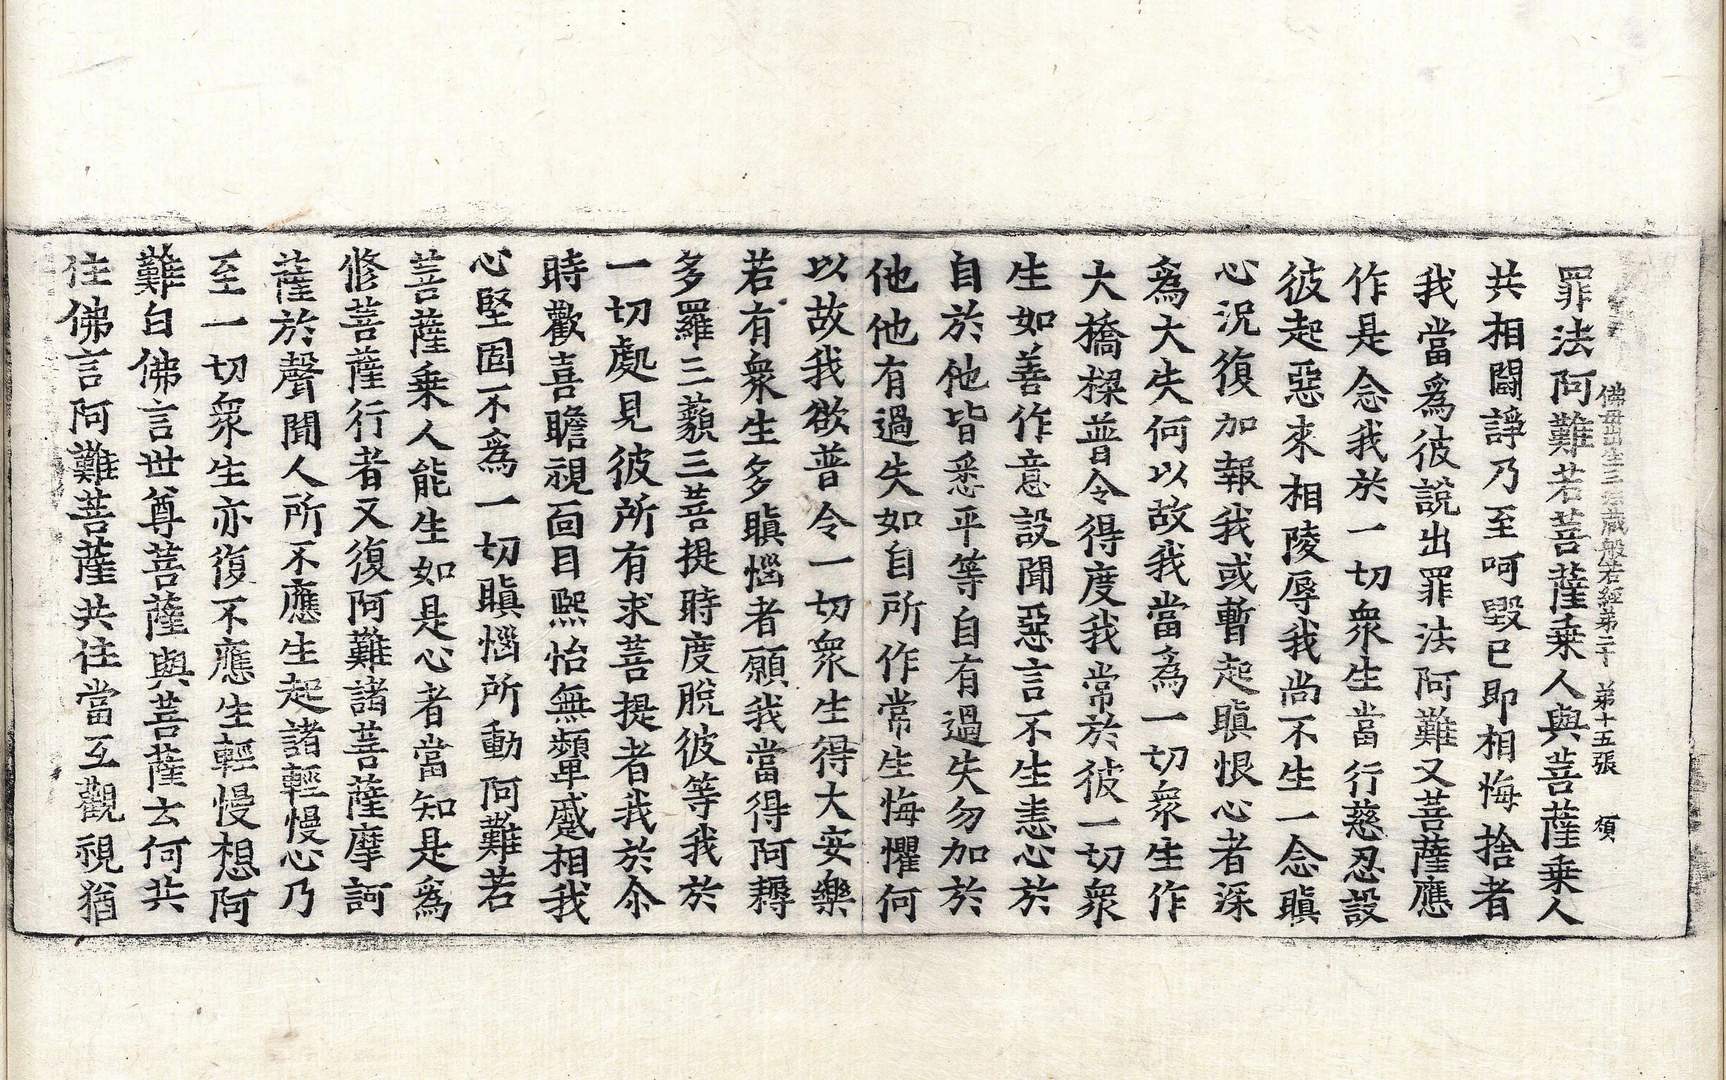 佛母出生三法藏般若經第二十　第十五張　頎
罪法阿難若菩薩乗人與菩薩乗人
共相鬪諍乃至呵毀已即相悔捨者
我當爲彼說出罪法阿難又菩薩應
作是念我於一切衆生當行慈忍設
彼起惡來相陵辱我尚不生一念瞋
心況復加報我或暫起瞋恨心者深
爲大失何以故我當爲一切衆生作
大橋樑普令得度我常於彼一切衆
生如善作意設聞惡言不生恚心於
自於他皆悉平等自有過失勿加於
他他有過失如自所作常生悔懼何
以故我欲普令一切衆生得大安樂
若有衆生多瞋惱者願我當得阿耨
多羅三藐三菩提時度脫彼等我於
一切處見彼所有求菩提者我於尒
時歡喜瞻視面目熙怡無顰蹙相我
心堅固不爲一切瞋惱所動阿難若
菩薩乗人能生如是心者當知是爲
修菩薩行者又復阿難諸菩薩摩訶
薩於聲聞人所不應生起諸輕慢心乃
至一切衆生亦復不應生輕慢想阿
難白佛言世尊菩薩與菩薩云何共
住佛言阿難菩薩共住當互觀視猶